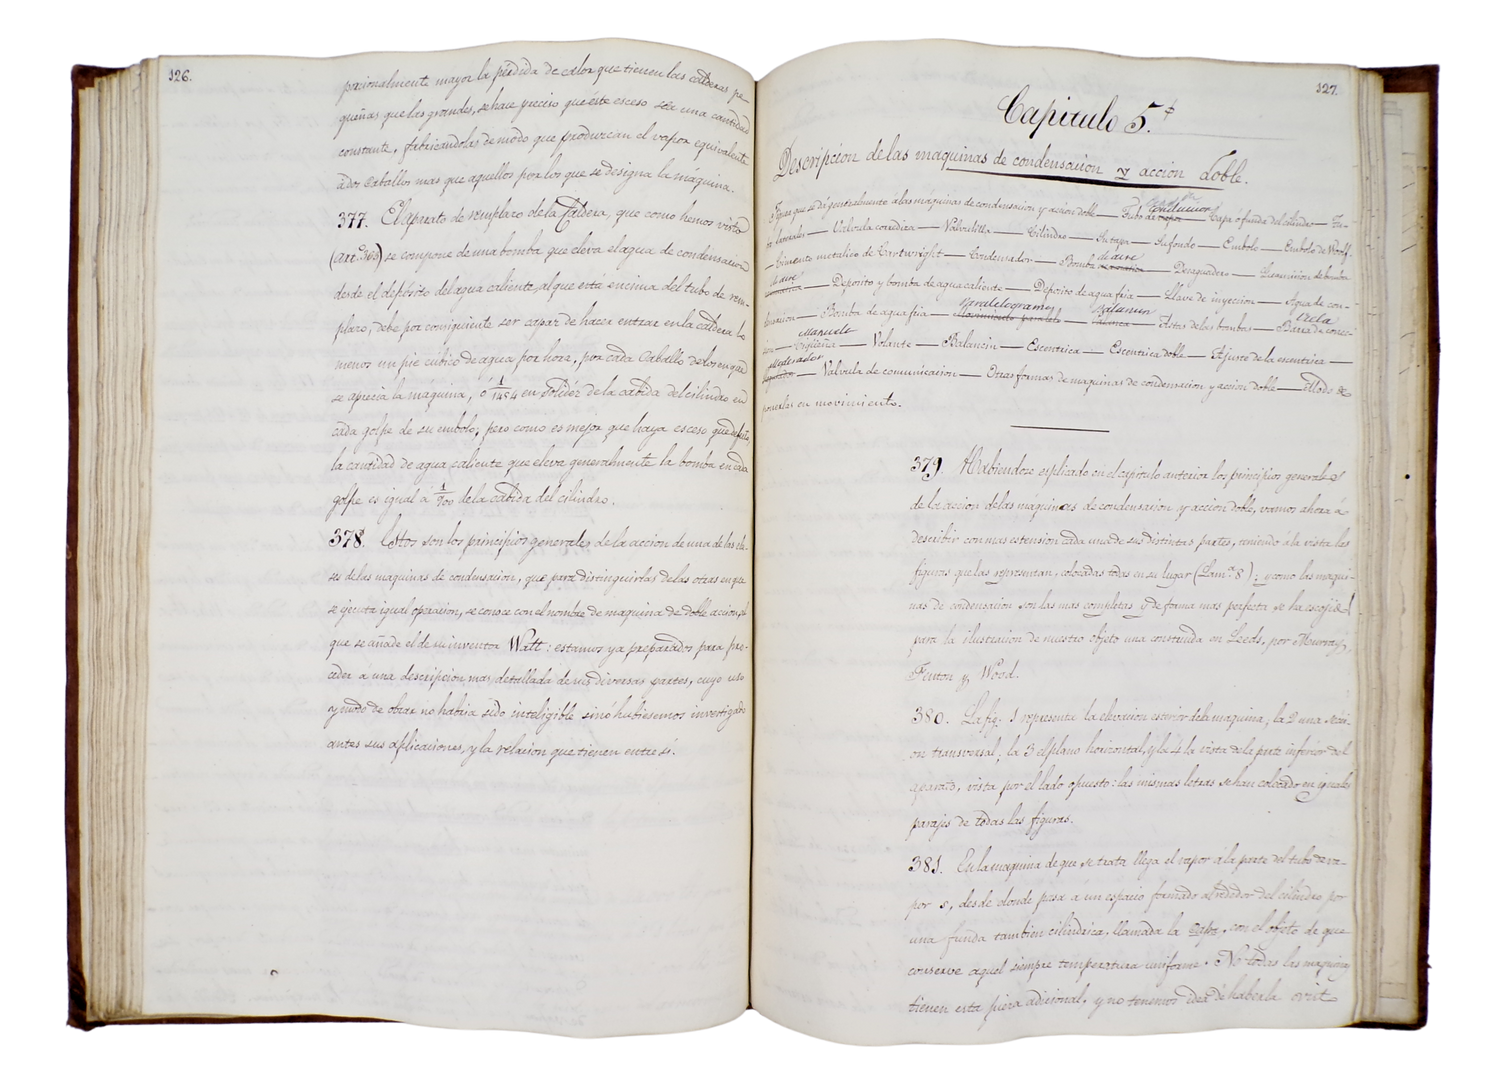 126.
porcionalmente mayor la pérdida de calor que tienen las calderas pe-
queñas que las grandes, se hace preciso que éste esceso sea una cantidad
constante, fabricandolas de modo que produzcan el vapor equivalente
á dos Caballos mas que aquellos por los que se designa la máquina.
377. El aparato de remplazo de la Caldera, que como hemos visto
(art.º 303) se compone de una bomba que eleva el agua de condensacion
desde el depósito del agua caliente, al que está encima del tubo de rem-
plazo, debe por consiguiente ser capaz de hacer entrar en la caldera lo
menos un pie cúbico de agua por hora, por cada Caballo de los en que
se aprecia la máquina, ó 1/1454 en solidéz de la cabida del cilindro en
cada golpe de su embolo; pero como es mejor que haya esceso que
la cantidad de agua caliente que eleva generalmente la bomba en cada
golpe es igual á 1/900 de la cabida del cilindro.
378. Estos son los principios generales de la accion de una de las cla-
ses de las maquinas de condensacion, que para distinguirlas de las otras en que
se ejecuta igual operacion, se conoce con el nombre de maquina de doble accion, al
que se añade el de su inventor Watt: estamos ya preparados para pro-
ceder á una descripcion mas detallada de sus diversas partes, cuyo uso
y modo de obrar no habria sido inteligible sino hubiesemos investigado
antes sus aplicaciones, y la relacion que tienen entre sí.
127.
Capitulo 5.º
Descripcion de las maquinas de condensacion y accion doble.
Figura que se dá generalmente á las máquinas de condensacion y accion doble — Tubo de vapor conduccion — Capa ó funda del cilindro — Tu-
bos laterales — Valvula corrediza — Valvulilla — Cilindro — Su tapa — Su fondo — Embolo — Embolo de Woolf.
— Cimento metalico de Cartwright — Condensador — Bomba de aire — Desaguadero — Dimension de bomba
de aire — Deposito y bomba de agua caliente — Deposito de agua fria — Llave de inyeccion — Agua de con-
densacion — Bomba de agua fria — Paralelogramo Movimiento paralelo — Balancin — Astas de las bombas — Barra de
Manuela Cigüeña — Volante — Balancin — Escentrica — Escentrica doble — Ajuste de la escentrica —
Moderador — Valvula de comunicacion — Otras formas de maquinas de condensacion y accion doble — Modo de
ponerlas en movimiento.
379. Habiendose esplicado en el capitulo anterior los principios generales
de la accion de las máquinas de condensacion y accion doble, vamos ahora á
describir con mas estension cada una de sus distintas partes, teniendo á la vista las
figuras que las representan, colocadas todas en su lugar (Lam.ª 8): y como las maqui-
nas de condensacion son las mas completas y de forma mas perfecta se ha escojido
para la ilustracion de nuestro objeto una construida en Leeds, por Murray,
Fenton y Wood.
380. La fig. 1 representa la elevacion esterior de la maquina, la 2 una sec-
on transversal, la 3 el plano horizontal, y la 4 la vista de la parte inferior del
aparato, vista por el lado opuesto: las mismas letras se han colocado en iguales
parajes de todas las figuras.
381. En la maquina de que se trata llega el vapor á la parte del tubo de va-
por s, desde donde pasa á un espacio formado alrededor del cilindro por
una funda tambien cilíndrica, llamada la Capa, con el objeto de que
conserve aquel siempre temperatura uniforme. No todas las maquinas
tienen esta pieza adicional, y no tenemos idea de haberla visto